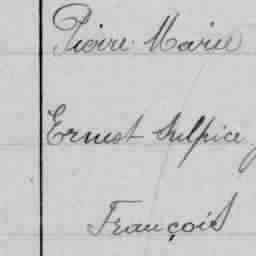 Pierre Marie
Ernest Sulpice
François